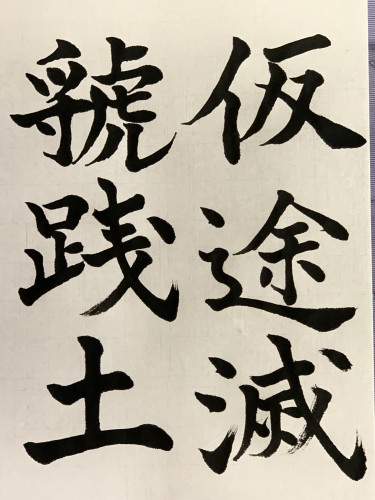 仮途滅
虢践土